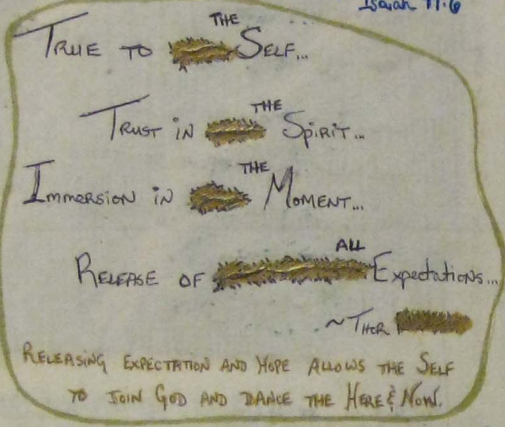 Isaiah 11:6
TRUE TO THE SELF...
TRUST IN THE SPIRIT...
IMMERSION IN THE MOMENT...
RELEASE OF ALL Expectations...
~THOR
RELEASING EXPECTATION AND HOPE ALLOWS THE SELF
TO JOIN GOD AND DANCE THE HERE & NOW.